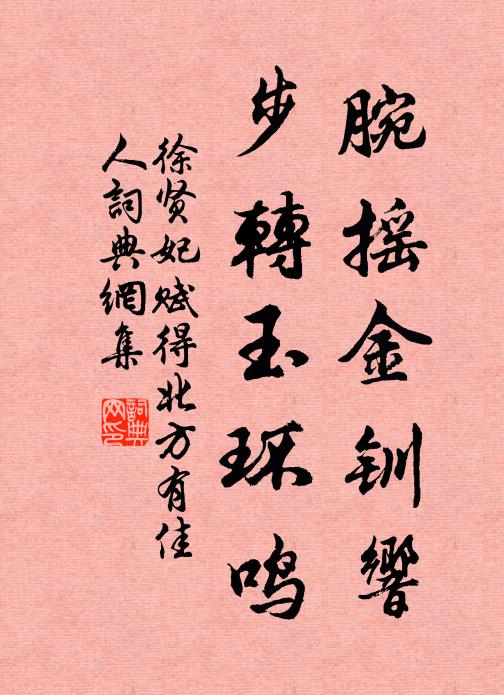 腕摇金钏響
步轉玉环鸣
徐贤妃赋得北方有佳
人詞典網集
詞典
网印